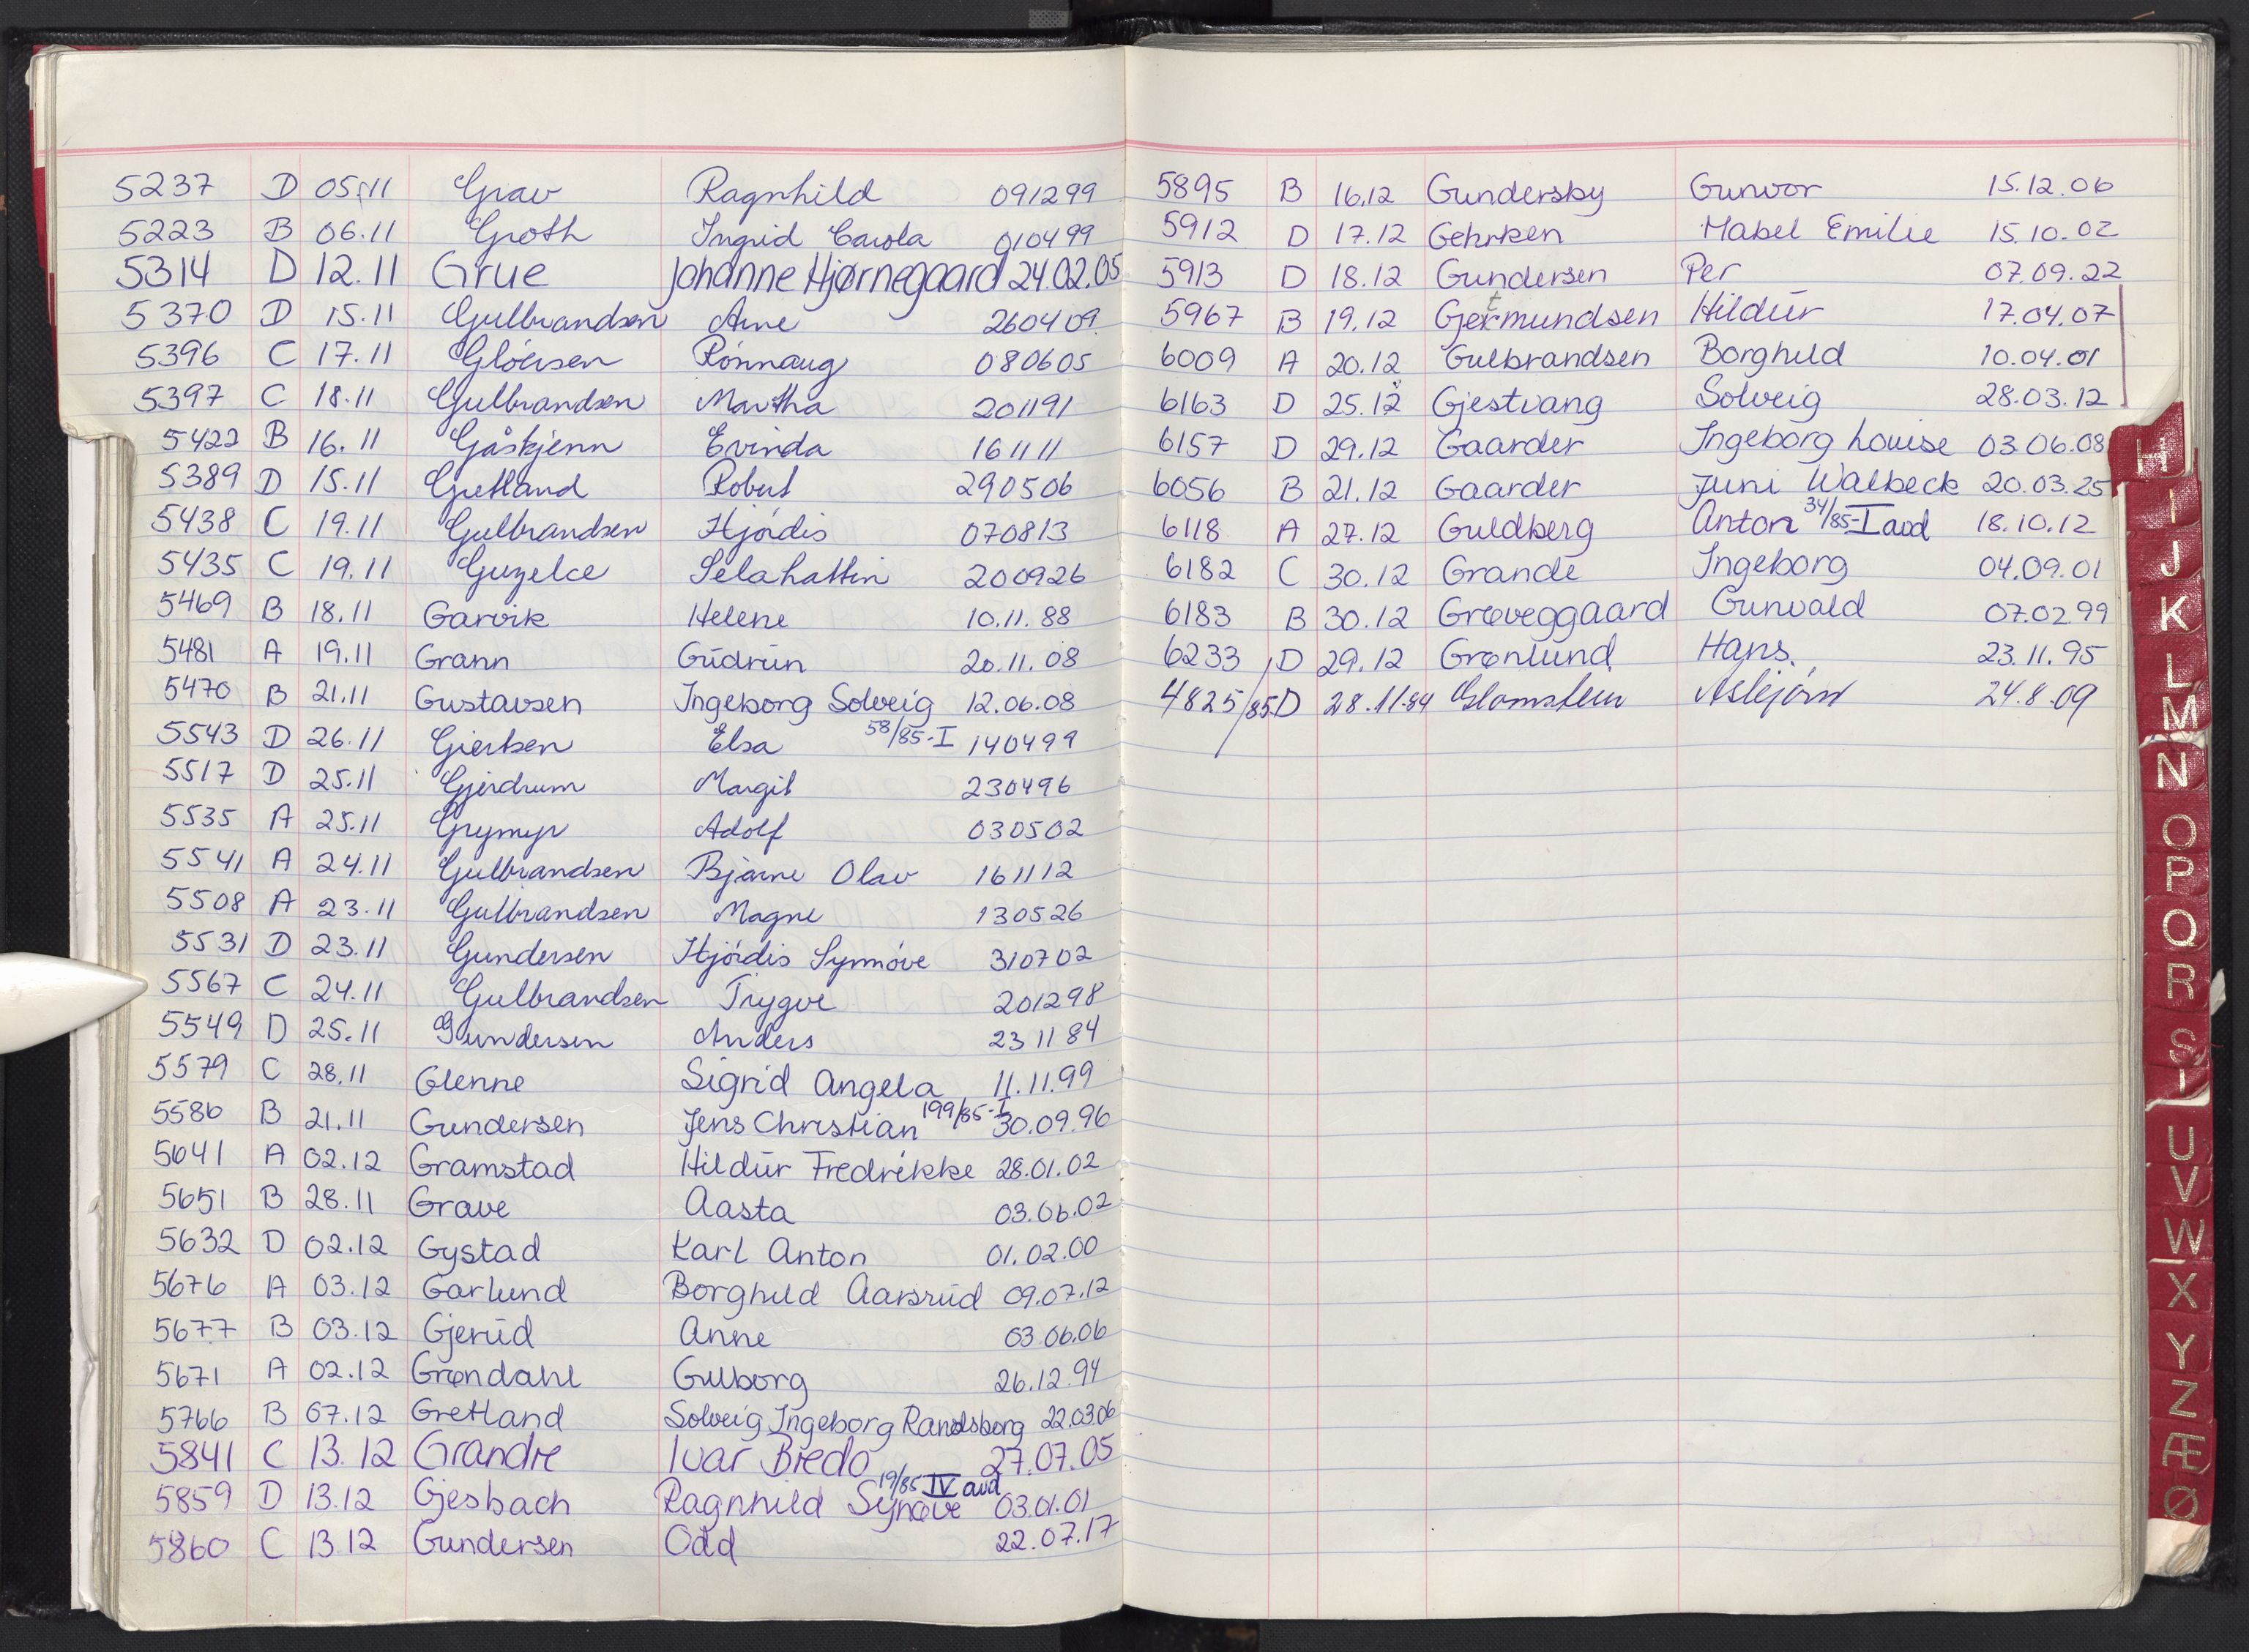 5237 D 05.11 Grav Ragnhild 091299
5223 B 06.11 Groth Ingrid Carola 010499
5314 D 12.11 Grue Johanne Hjørnegaard 24.02.05
5370 D 15.11 Gulbrandsen Arne 260409
5396 C 17.11 Glóersen Rónnaug 080605
5397 C 18.11 Gulbrandsen Martha 201191
5422 B 16.11 Gåskjenn Evinda 161111
5389 D 15.11 Gretland Robert 290506
5438 C 19.11 Gulbrandsen Hjórdis 070813
5435 C 19.11 Guzelce Selahattin 200926
5469 B 18.11 Garvik Helene 10.11.88
5481 A 19.11 Grann Gudrun 20.11.08
5470 B 21.11 Gustavsen Ingeborg Solveig 12.06.08
5543 D 26.11 Giertsen Elsa 58/85-I 140499
5517 D 25.11 Gjerdrum Margit 230496
5535 A 25.11 Grymyr Adolf 030502
5541 A 24.11 Gulbrandsen Bjarne Olav 161112
5508 A 23.11 Gulbrandsen Magne 130526
5531 D 23.11 Gundersen Hjórdis Synnóve 310702
5567 C 24.11 Gulbrandsen Trygve 201298
5549 D 25.11 Gundersen Anders 231184
5579 C 28.11 Glenne Sigrid Angela 11.11.99
5586 B 21.11 Gundersen Jens Christian 199/85-I 30.09.96
5641 A 02.12 Gramstad Hildur Fredrikke 28.01.02
5651 B 28.11 Grave Aasta 03.06.02
5632 D 02.12 Gystad Karl Anton 01.02.00
5676 A 03.12 Garlund Borghild Aarsrud 09.07.12
5677 B 03.12 Gjerud Anne 03.06.06
5671 A 02.12 Grøndahl Gulborg 26.12.94
5766 B 07.12 Gretland Solveig Ingeborg Randsborg 22.03.06
5841 C 13.12 Grandre Ivar Bredo 27.07.05
5859 D 13.12 Gjesbach Ragnhild Synøve 19/85 IV avd 03.01.01
5860 C 13.12 Gundersen Odd 22.07.17
5895 B 16.12 Gundersby Gunvor 15.12.06
5912 D 17.12 Gehrken Mabel Emilie 15.10.02
5913 D 18.12 Gundersen Per 07.09.22
5967 B 19.12 Gjetmundsen Hildur 17.04.07
6009 A 20.12 Gulbrandsen Borghild 10.04.01
6163 D 25.12 Gjestvang Solveig 28.03.12
6157 D 29.12 Gaarder Ingeborg Louise 03.06.08
6056 B 21.12 Gaarder Juni Walbeck 20.03.25
6118 A 27.12 Guldberg Anton 34/85-I avd 18.10.12
6182 C 30.12 Grande Ingeborg 04.09.01
6183 B 30.12 Grøveggaard Gunvald 07.02.99
6233 D 29.12 Grønlund Hans. 23.11.95
4825/85 D 28.11.84 Glomstein Asbjórn 24.8.09
H
I
J
K
L
M
N
O
P
Q
R
S
U
V
W
X
Y
Z
Æ
Ø